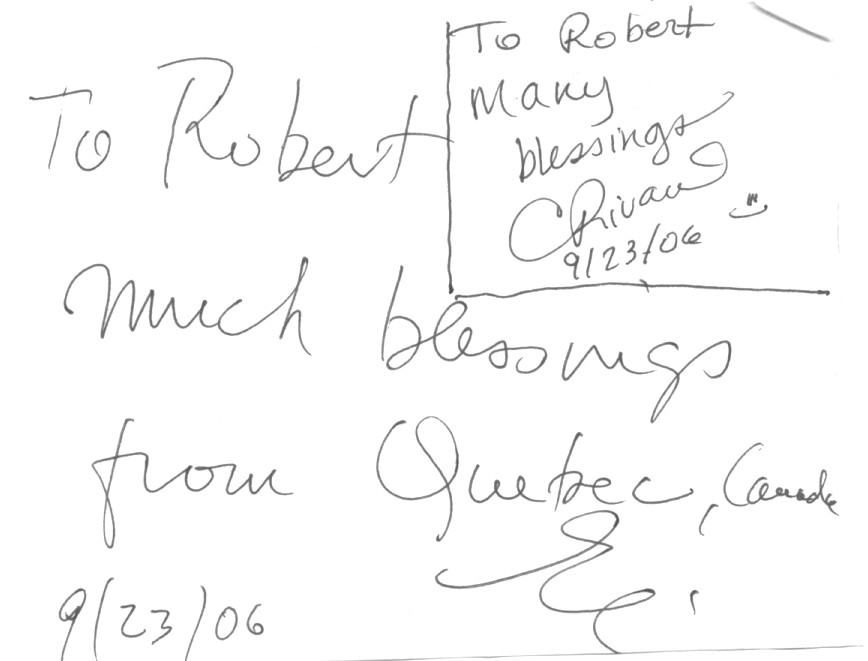 To Robert
Many
blessings
CRivard
9/23/06
To Robert
Much blessings
from Quebec, Canada
9/23/06